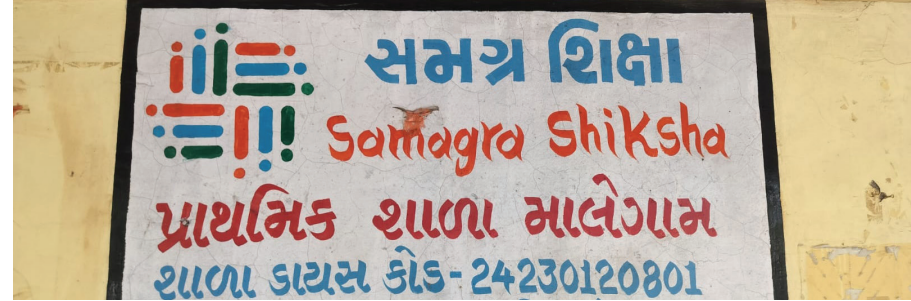 સમગ્ર શિક્ષા
Samagra Shiksha
પ્રાથમિક શાળા માલેગામ
શાળા ડાયસ કોડ-24230120801